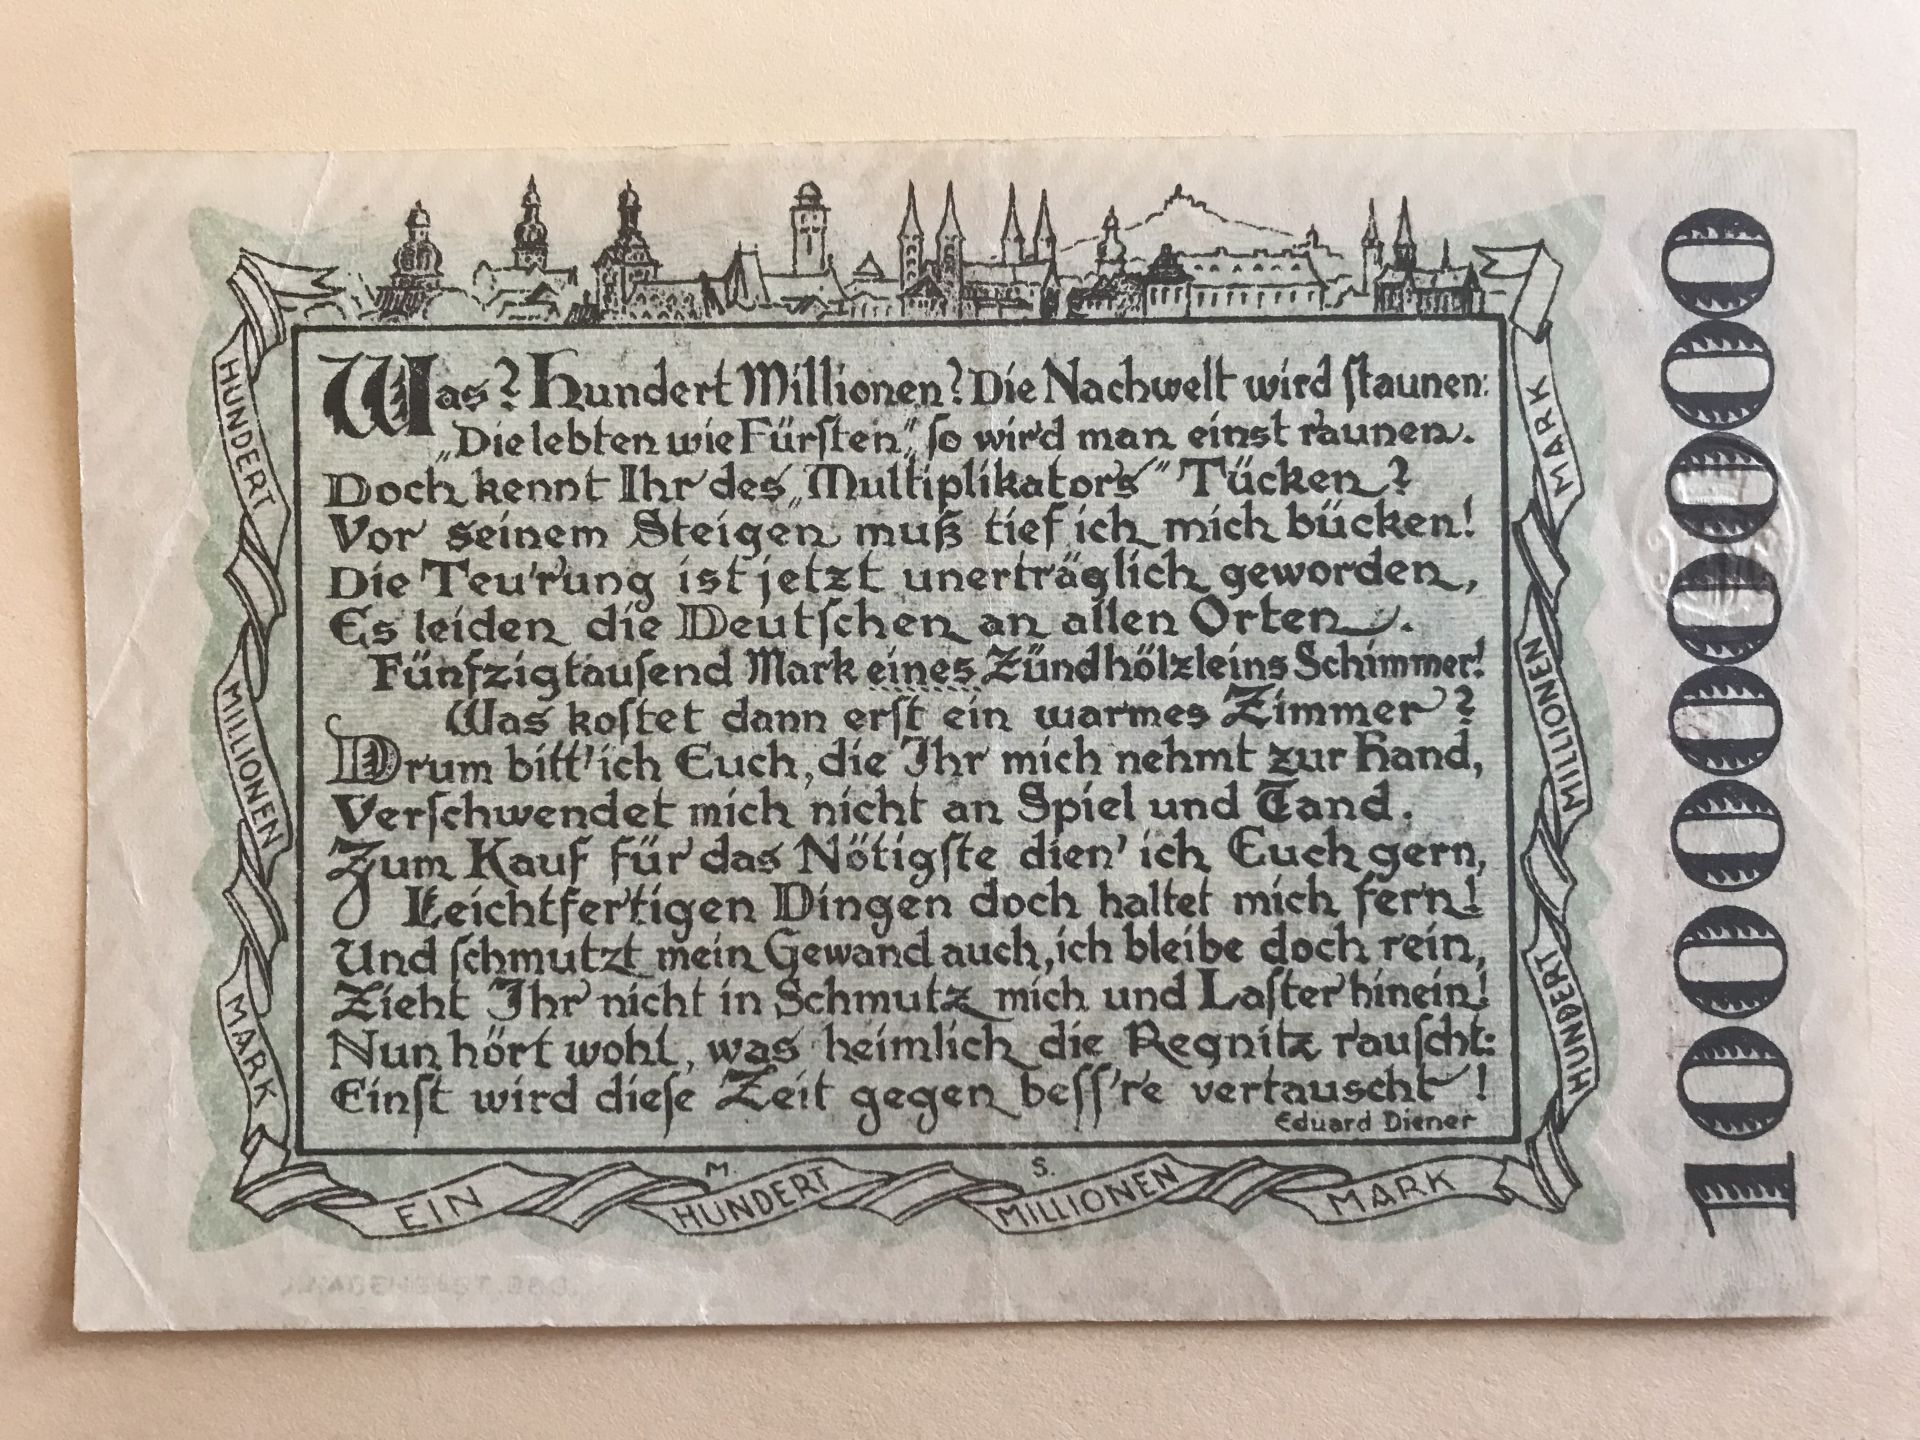 Was? Hundert Millionen? Die Nachwelt wird ſtaunen:
„Die lebten wie Fürſten", ſo wird man einst raunen.
Doch kennt Ihr des „Multiplikators" Tücken?
Vor seinem Steigen muß tief ich mich bücken!
Die Teu'rung ist jetzt unerträglich geworden,
Es leiden die Deutſchen an allen Orten.
Fünfzigtauſend Mark eines Zündhölzleins Schimmer!
Was koſtet dann erſt ein warmes Zimmer?
Drum bitt' ich Euch, die Ihr mich nehmt zur Hand,
Verſchwendet mich nicht an Spiel und Tand.
Zum Kauf für das Nötigſte dien' ich Euch gern,
Leichtfertigen Dingen doch haltet mich fern!
Und ſchmutzt mein Gewand auch, ich bleibe doch rein,
Zieht Ihr nicht in Schmutz mich und Laſter hinein!
Nun hört wohl, was heimlich die Regnitz rauſcht:
Einſt wird dieſe Zeit gegen beſſ're vertauscht!
Eduard Diener
HUNDERT
MILLIONEN
MARK
M. S.
EIN HUNDERT MILLIONEN MARK
HUNDERT
MILLIONEN
MARK
100000000